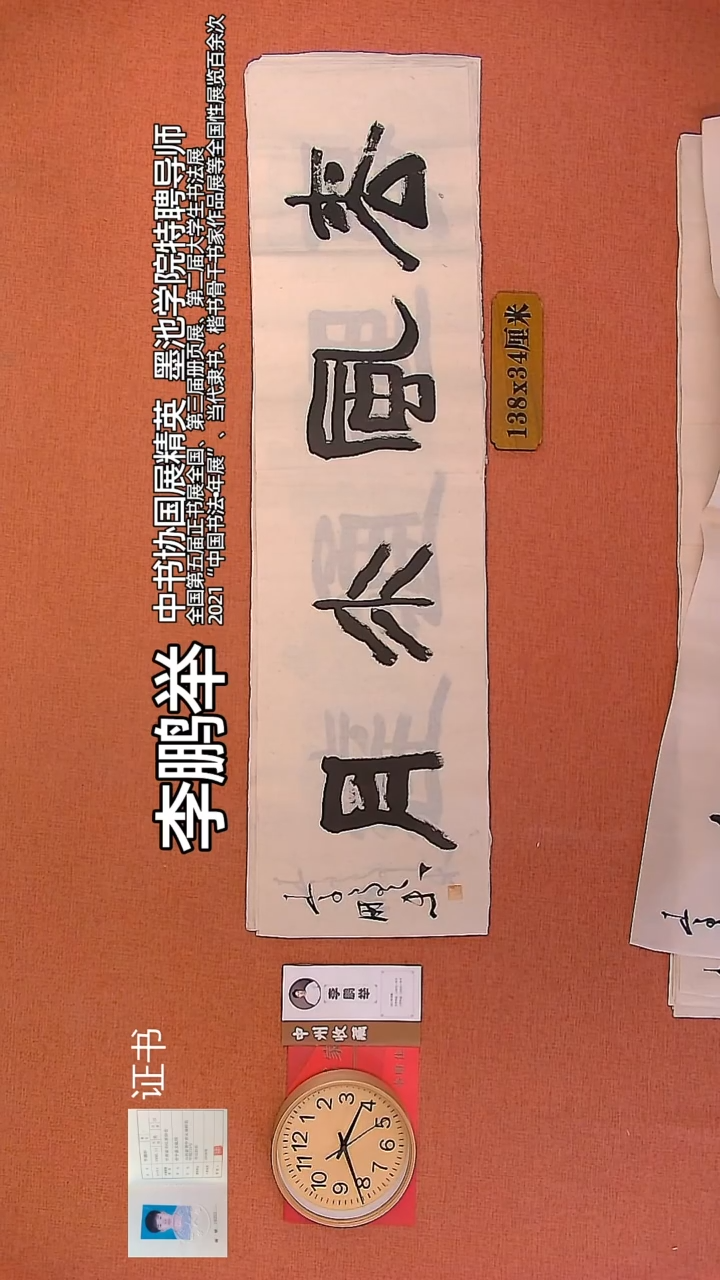 李鹏举
中书协国展精英 墨池学院特聘导师
全国第五届正书展全国、第三届册页展、第二届大学生书法展
2021“中国书法·年展”、当代隶书、楷书骨干书家作品展等全国性展览百余次
春風月
李鹏举
138x34厘米
证书
李鹏举
中州收藏
12
1
2
3
4
5
6
7
8
9
10
11